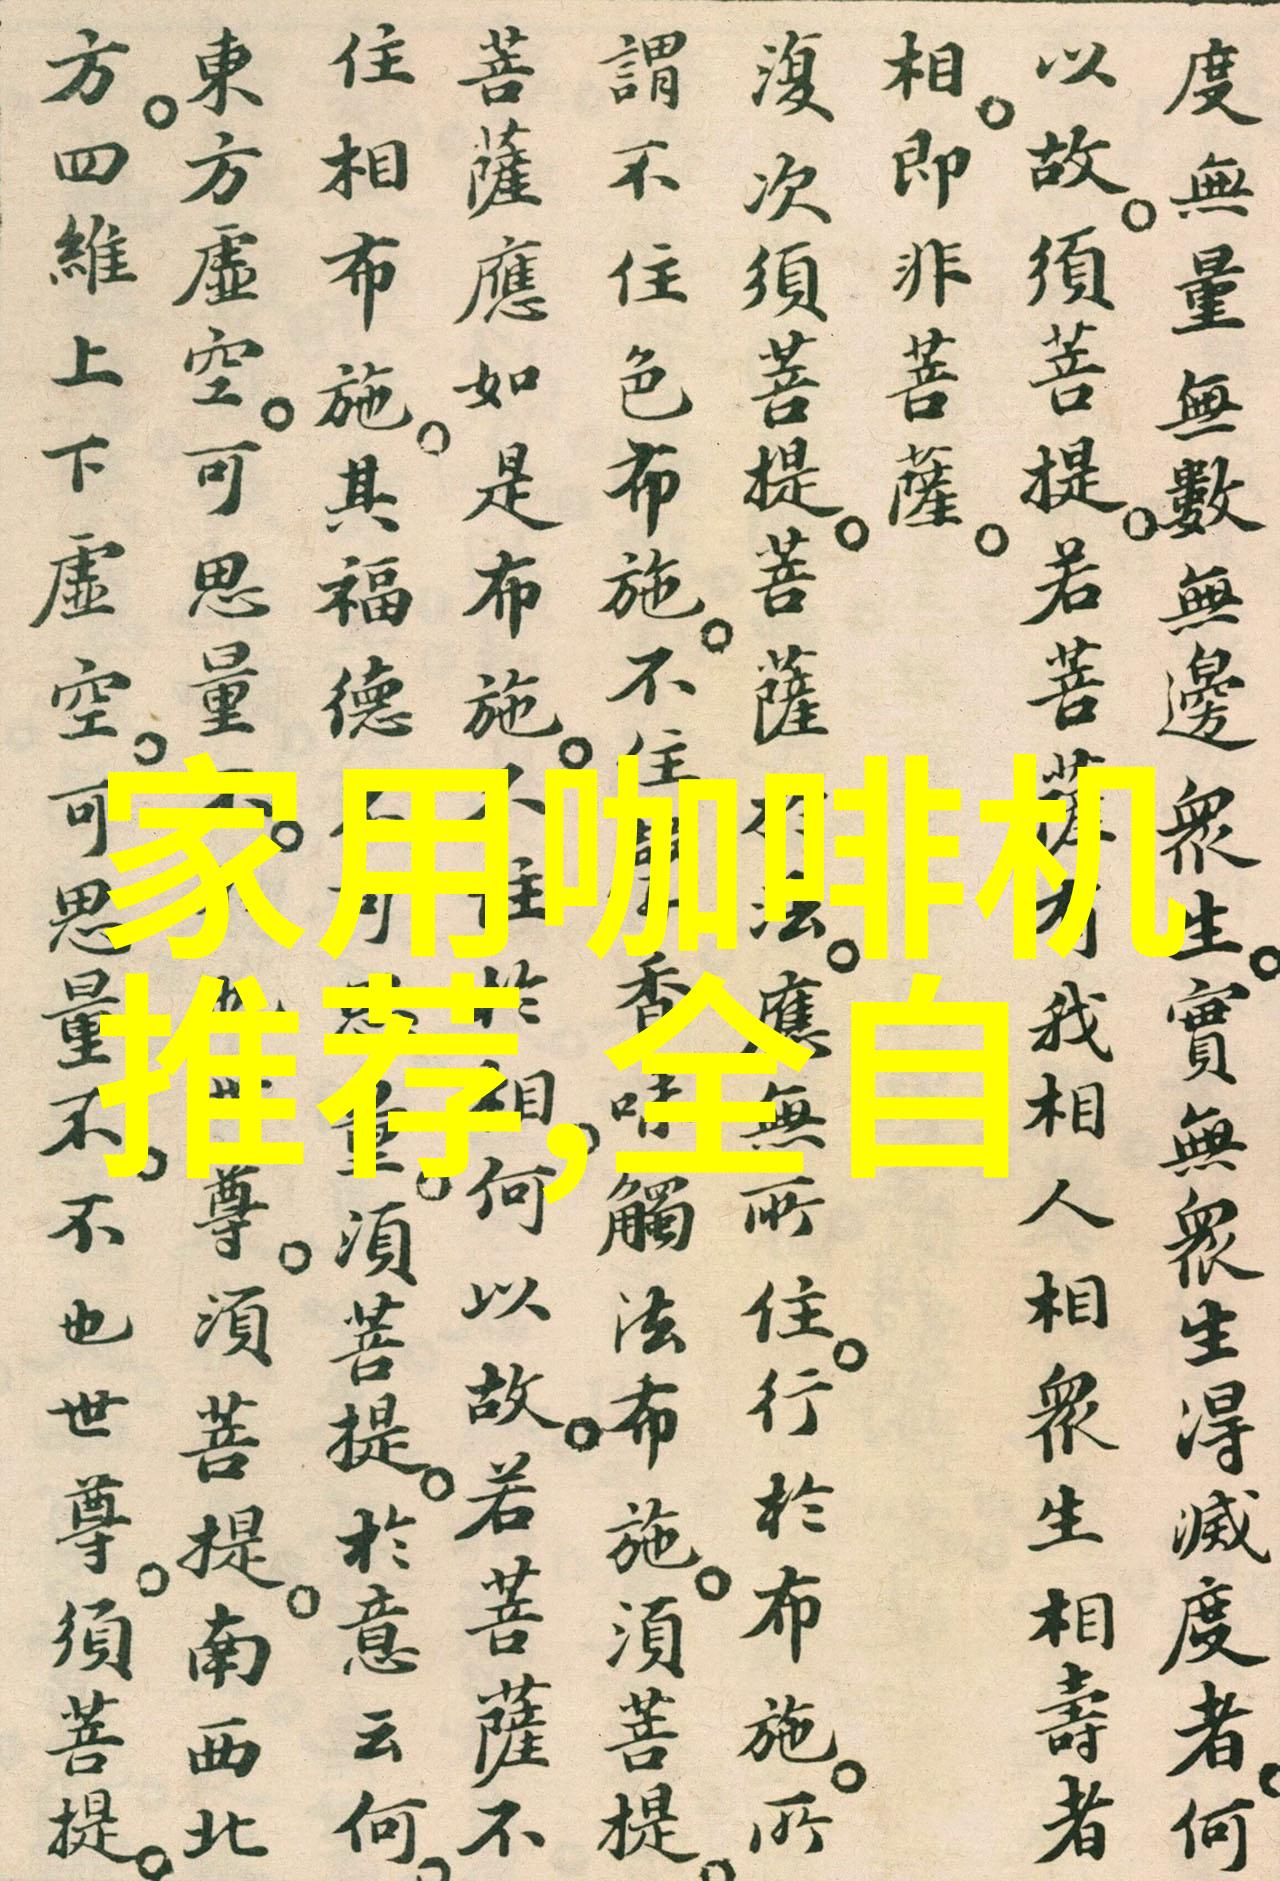 度無量無數無邊衆生。實無衆生得滅度者。何
以故。須菩提。若菩薩有我相人相衆生相壽者
相。即非菩薩。
復次須菩提。菩薩於法。應無所住。行於布施。所
謂不住色布施。不住聲香味觸法布施。須菩提。
菩薩應如是布施。不住於相。何以故。若菩薩不
住相布施。其福德不可思量。須菩提。於意云何。
東方虛空。可思量不。不也世尊。須菩提。南西北
方。四維上下虛空。可思量不。不也世尊。須菩提。
家用咖啡机
推荐,全自